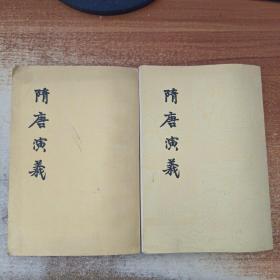 隋唐演義
隋唐演義